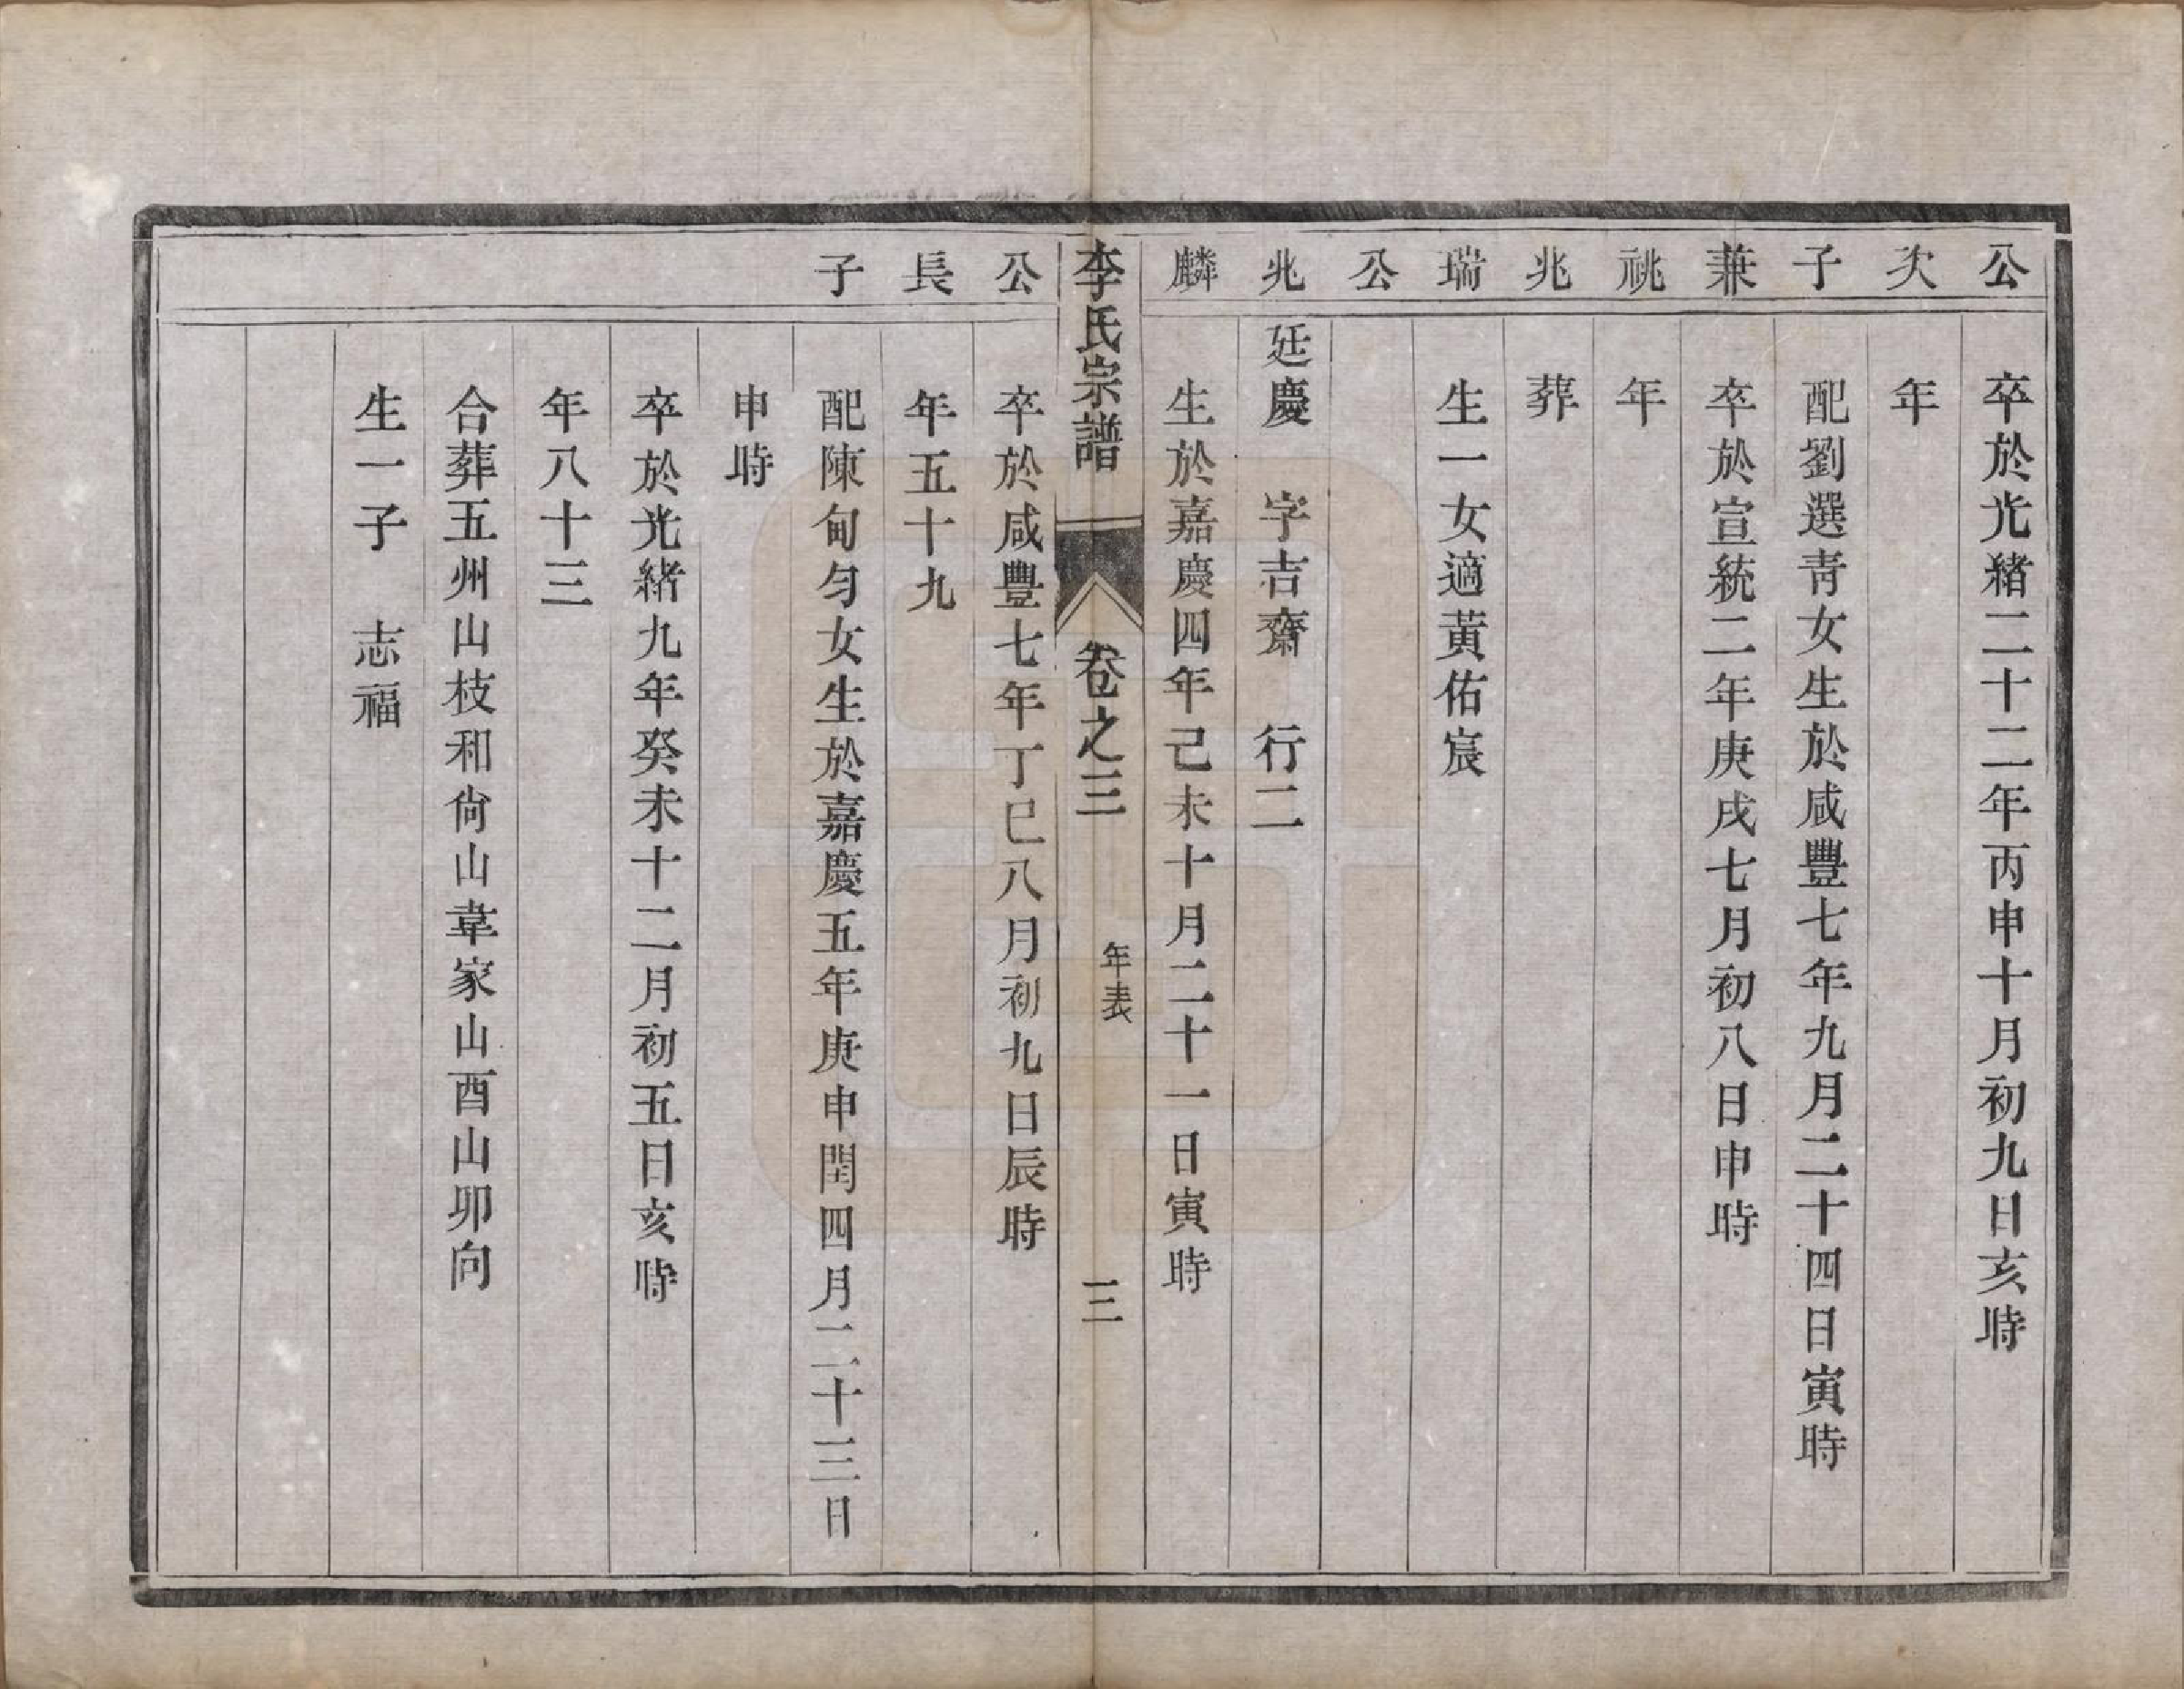 公次子兼祧兆瑞公
卒於光緒二十二年丙申十月初九日亥時
年
配劉選青女生於咸豐七年九月二十四日寅時
卒於宣統二年庚戌七月初八日申時
年
葬
生一女適黃佑宸
兆麟
廷慶　字吉齋　行二
生於嘉慶四年己未十月二十一日寅時
李氏宗譜　卷之三　年表　三
公長子
卒於咸豐七年丁巳八月初九日辰時
年五十九
配陳甸勻女生於嘉慶五年庚申閏四月二十三日
申時
卒於光緒九年癸未十二月初五日亥時
年八十三
合葬五州山枝和尙山韋家山酉山卯向
生一子　志福